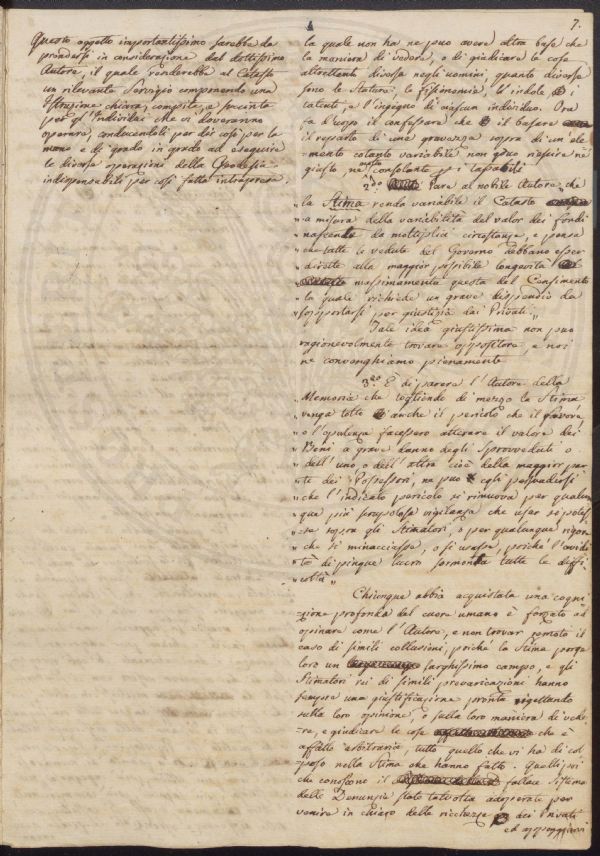 7.
Questo oggetto importantissimo sarebbe da
prendersi in considerazione dal dottissimo
Autore, il quale renderebbe al Catasto
un rilevante servigio componendo una
Istruzione chiara, compita, e succinta
per gl'Individui che vi doveranno
operare, conducendoli per dei così per la
mano e di grado in grado ad eseguire
le diverse operazioni della Geodesia
indispensabili per così fatta intrapresa.
la quale non ha ne può avere altra base che
la maniera di vedere, o di giudicare le cose
altrettanto diversa negli uomini, quanto diverse
sono le stature, le fisionomie, l'indole i
talenti, e l'ingegno di ciascun individuo. Ora
è d'uopo il confessare che il basare
il reparto di una gravezza sopra di un'ele
=mento cotanto variabile non può riuscire nè
giusto, ne consolante p. i tassabili
2.do Pare al nobile Autore, che
la Stima renda variabile il Catasto
" a misura della variabilità del valor dei fondi
" nascendo da molteplici circostanze, e pensa
" che tutte le vedute del Governo debbano esser
" dirette alla maggior possibile longevità
" massimamente questa del Censimento
" la quale richiede un grave dispendio da
" sopportarsi per giustizia dai Privati."
Tale idea giustissima non può
ragionevolmente trovare oppositore, e noi
ne convenghiamo pienamente
3.zo È di parere l'Autore della
Memoria che togliendo di mezzo la Stima
" venga tolto anche il pericolo che il favore,
" o l'opulenza facessero alterare il valore dei
" Beni a grave danno degli sprovveduti o
" dell'uno o dell'altra cioè della maggior par
" te dei Possessori, ne può egli persuadersi
" che l'indicato pericolo si rimuova per qualun
" que più scrupolosa vigilanza che usar si potes
" se sopra gli Stimatori, o per qualunque rigore
" che si minacciasse, o si usasse, poichè l'avidi
" tà di pingue lucro sormonta tutte le diffi
" coltà"
Chiunque abbia acquistata una cogni
=zione profonda del cuore umano è forzato ad
opinare come l'Autore, e non trovar remoto il
caso di simili collusioni, poichè la Stima porge
loro un larghissimo campo, e gli
Stimatori rei di simili prevaricazioni hanno
sempre una giustificazione pronta rigettando
sulla loro opinione, o sulla loro maniera di vede
=re, e giudicare le cose che è
affatto arbitraria, tutto quello che vi ha di col
poso nella Stima che hanno fatto. Quelli poi
che conoscono il fallace sistema
delle Denunzie state talvolta adoperate per
venire in chiaro delle ricchezze dei Privati
ed appoggiarvi